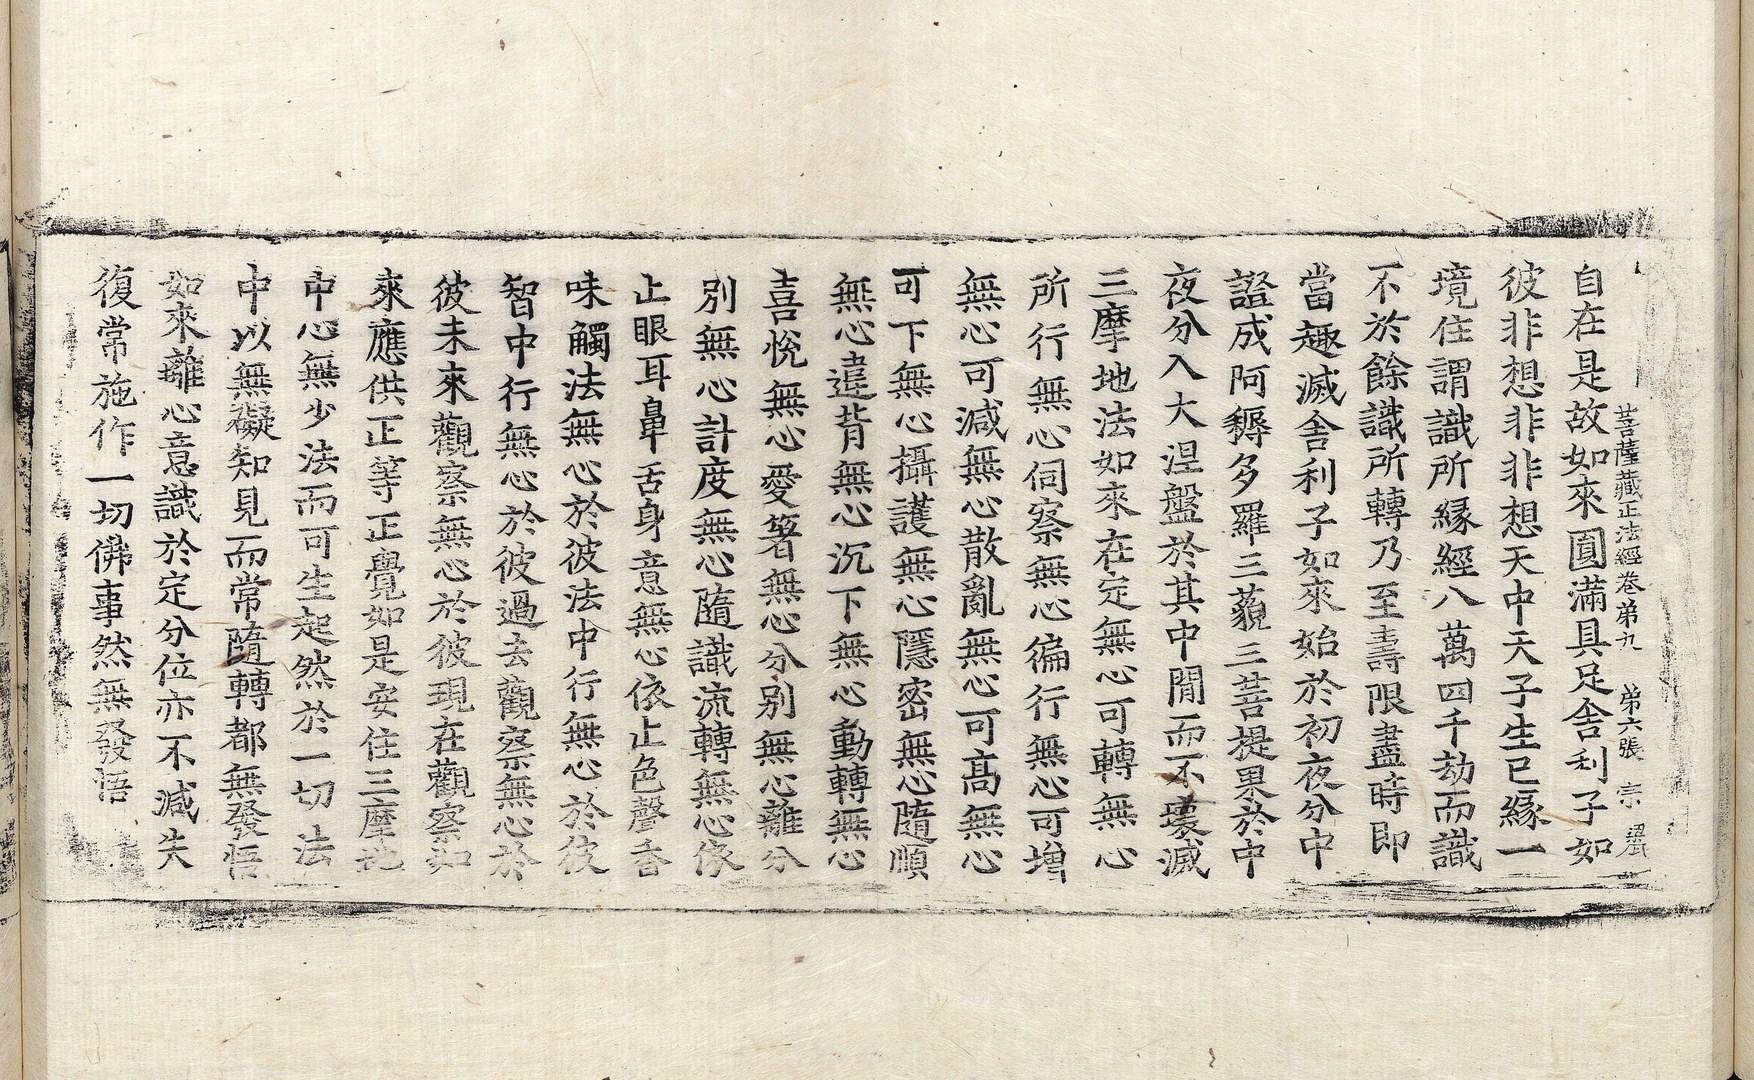 菩薩藏正法經卷第九 第六張 宗
自在是故如來圓滿具足舍利子如
彼非想非非想天中天子生已緣一
境住謂識所緣經八萬四千劫而識
不於餘識所轉乃至壽限盡時即
當趣滅舍利子如來始於初夜分中
證成阿耨多羅三藐三菩提果於中
夜分入大涅盤於其中閒而不壞滅
三摩地法如來在定無心可轉無心
所行無心伺察無心徧行無心可增
無心可減無心散亂無心可高無心
可下無心攝護無心隱密無心隨順
無心違背無心沉下無心動轉無心
喜悅無心愛著無心分別無心離分
別無心計度無心隨識流轉無心依
止眼耳鼻舌身意無心依止色聲香
味觸法無心於彼法中行無心於彼
智中行無心於彼過去觀察無心於
彼未來觀察無心於彼現在觀察如
來應供正等正覺如是安住三摩地
中心無少法而可生起然於一切法
中以無礙知見而常隨轉都無發悟
如來離心意識於定分位亦不減失
復常施作一切佛事然無發悟